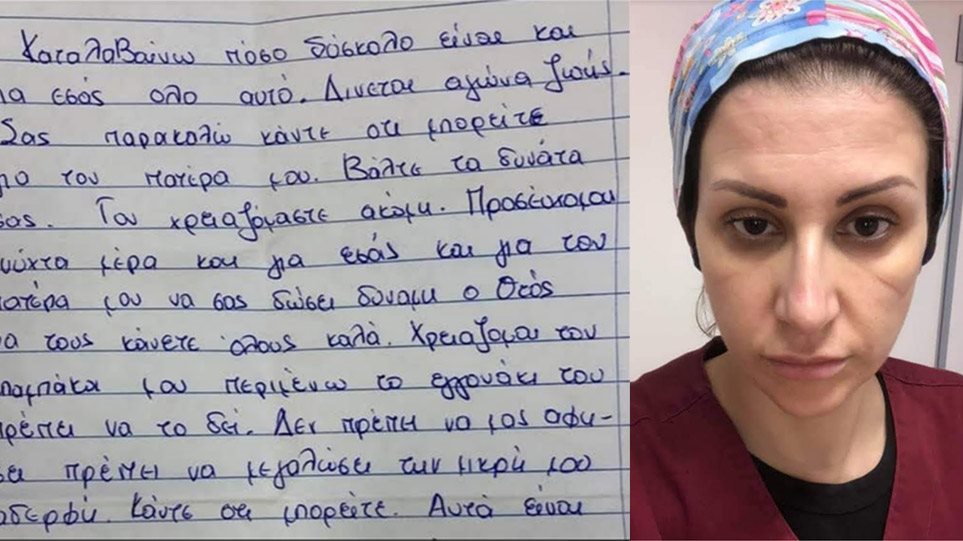 Καταλαβαίνω πόσο δύσκολο είναι και
ια εσάς ολο αυτό. Δινεται αγώνα ζωής.
Σας παρακαλώ κάντε οτι μπορείτε
για τον πατέρα μου. Βάλτε τα δυνάτα
σας. Τον χρειαζόμαστε ακόμη. Προσεύχομαι
νύχτα μέρα και για εσάς και για τον
πατέρα μου να σας δώσει δύναμη ο Θεός
να τους κάνετε όλους καλά. Χρειαζομαι τον
μπαμπάκα μου περιμένω το εγγονάκι του
πρέπει να το δεί. Δεν πρέπει να μας αφη-
σει πρέπει να μεγαλώσει την μικρή μου
αδερφή. Κάντε οτι μπορείτε. Αυτά είναι